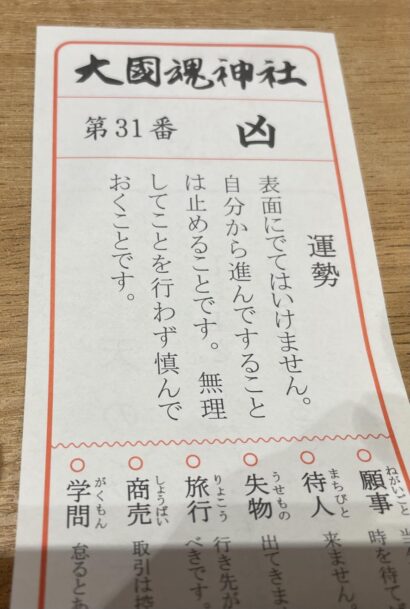 大國魂神社
第31番
凶
運勢
表面にでてはいけません。
自分から進んですること
は止めることです。無理
してことを行わず慎んで
おくことです。
願事
ねがいごと
時を待て
待人
まちびと
来ません
失物
うせもの
出てきま
旅行
りょこう
行き先が
べきです。
商売
しょうばい
取引は控
学問
がくもん
怠ると